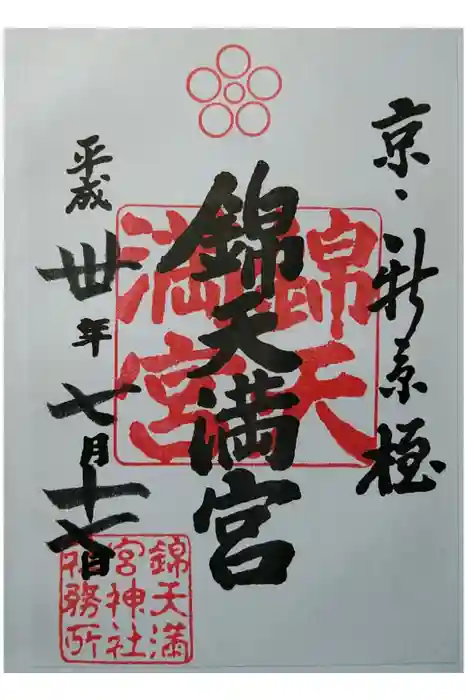 京・新京極
錦天満宮
錦天
満宮
平成卅年七月十七日
錦天満
宮神社
社務所